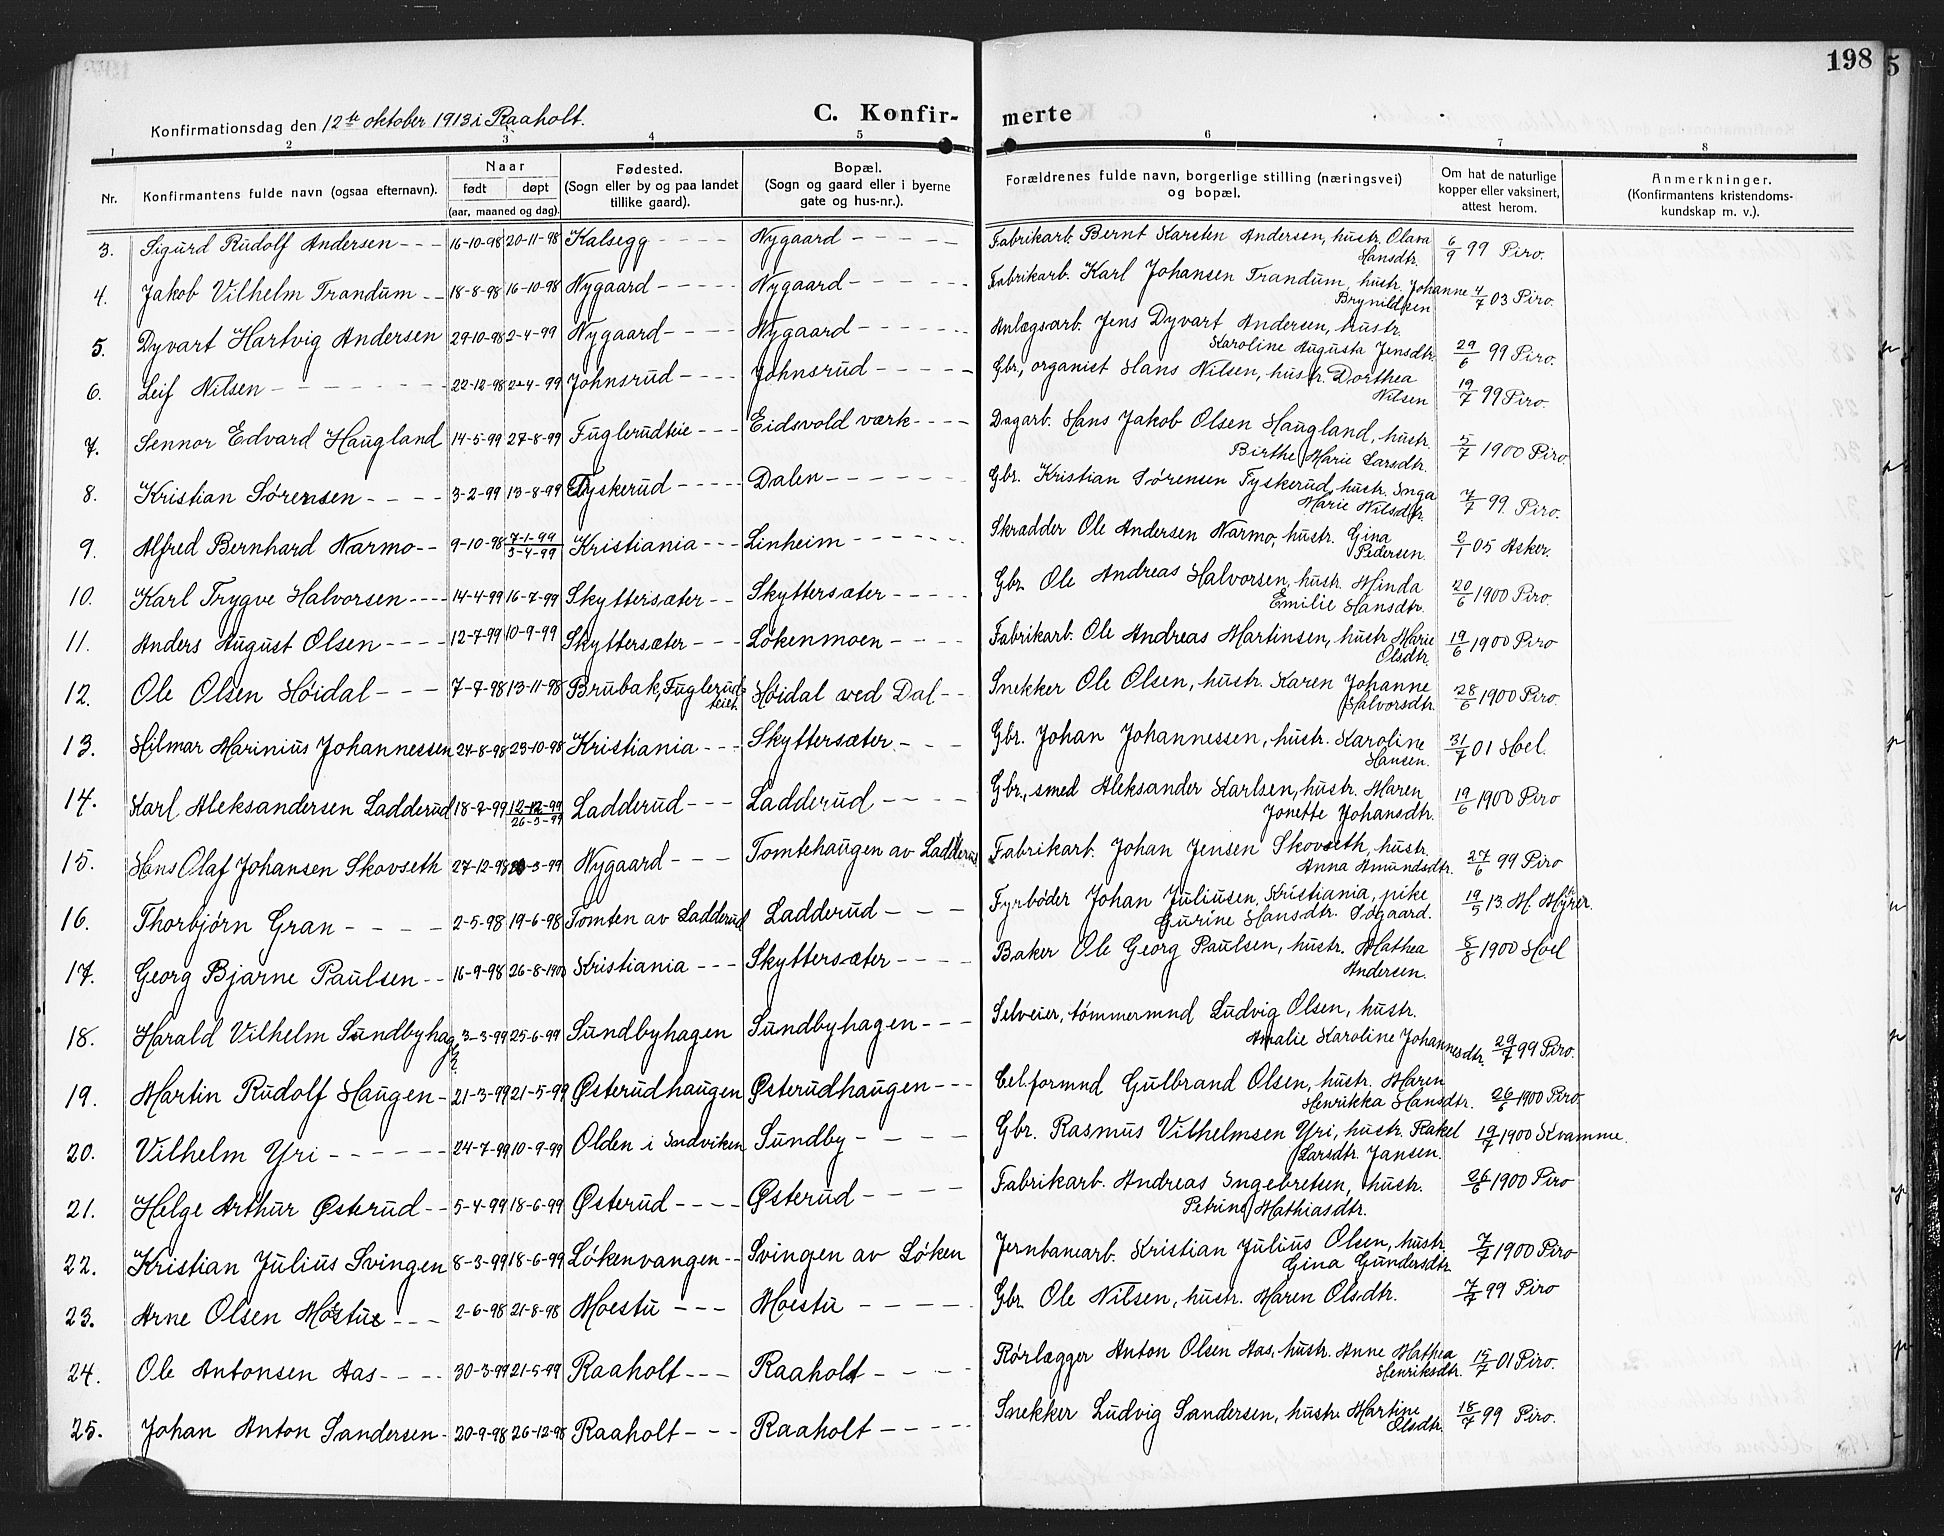 198
5
Konfirmationsdag den 12te oktober 1913 i Raaholt.
C. Konfir-
merte
1 2 3 4 5 6 7 8
Nr. Konfirmantens fulde navn (ogsaa efternavn). Naar født døpt (aar, maaned og dag). Fødested. (Sogn eller by og paa landet tillike gaard). Bopæl. (Sogn og gaard eller i byerne gate og hus-nr.). Forældrenes fulde navn, borgerlige stilling (næringsvei) og bopæl. Om hat de naturlige kopper eller vaksinert, attest herom. Anmerkninger. (Konfirmantens kristendoms-kundskap m. v.).
3. Sigurd Rudolf Andersen - - - 16-10-98 20-11-98 Kalsegg - - - - Nygaard - - - - Fabrikarb. Bernt Karsten Andersen, hustr. Olava Hansdtr. 6/9 99 Piro.
4. Jakob Vilhelm Trandum - - 18-8-98 16-10-98 Nygaard - - - - Nygaard - - - - Fabrikarb. Karl Johansen Trandum, hustr. Johanne Brynildsen 4/7 03 Piro.
5. Dyvart Hartvig Andersen 29-10-98 2-4-99 Nygaard - - - - Nygaard - - - - Anlægsarb. Jens Dyvart Andersen, hustr. Karoline Augusta Jensdtr. 29/6 99 Piro.
6. Leif Nilsen - - - - - - 22-12-98 2-4-99 Johnsrud - - - - Johnsrud - - - - Gbr., organist Hans Nilsen, hustr. Dorthea Nilsen 19/7 99 Piro.
7. Sennor Edvard Haugland 14-5-99 27-8-99 Fuglerudteie - - - Eidsvold værk - - - - Dagarb. Hans Jakob Olsen Haugland, hustr. Birthe Marie Larsdtr. 5/7 1900 Piro.
8. Kristian Sørensen - - - - 3-2-99 13-8-99 Tyskerud - - - - Dalen - - - - - Gbr. Kristian Sørensen Tyskerud, hustr. Inga Marie Nilsdtr. 7/7 99. Piro.
9. Alfred Bernhard Narmo - - 9-10-98 7-1-99 3-4-99 Kristiania - - - Linheim - - - - - Skrædder Ole Andersen Narmo, hustr. Gina Pedersen. 2/1 05 Asker.
10. Karl Trygve Halvorsen - - - - 14-4-99 16-7-99 Skyttersæter - - Skyttersæter - - - - Gbr. Ole Andreas Halvorsen, hustr. Minda Emilie Hansdtr. 20/6 1900 Piro.
11. Anders August Olsen - - - - 12-7-99 10-9-99 Skyttersæter - - Løkenmoen - - - - Fabrikarb. Ole Andreas Martinsen, hustr. Marie Olsdtr. 19/6 1900 Piro
12. Ole Olsen Høidal - - - 7-7-98 13-11-98 Brubak, Fuglerudteiet Høidal ved Dal - - Snekker Ole Olsen, hustr. Karen Johanne Halvorsdtr. 28/6 1900 Piro.
13. Hilmar Marinius Johannessen 24-8-98 23-10-98 Kristiania - - - Skyttersæter. - - - Gbr. Johan Johannessen, hustr. Karoline Hansen. 31/7 01 Hoel.
14. Karl Aleksandersen Ladderud 18-7-99 12-12-99 26-3-99 Ladderud - - - Ladderud - - - - Gbr., smed Aleksander Karlsen, hustr. Maren Jonette Johansdtr. 19/6 1900 Piro
15. Hans Olaf Johansen Skovseth 27-12-98 -3-99 Nygaard - - - Tomtehaugen av Ladderud Fabrikarb. Johan Jensen Skovseth, hustr. Anna Amundsdtr. 27/6 99 Piro
16. Thorbjørn Gran - - - - 2-5-98 19-6-98 Tomten av Ladderud Ladderud - - - - Fyrbøder Johan Juliusen, Kristiania, pike Gurine Hansdtr. Søgaard. 19/5 13. M. Myrer.
17. Georg Bjarne Paulsen - - 16-9-98 26-8-1900 Kristiania - - - Skyttersæter - - - - Baker Ole Georg Paulsen, hustr. Mathea Andersen. 8/8 1900 Hoel
18. Harald Vilhelm Sundbyhagen 3-3-99 25-6-99 Sundbyhagen Sundbyhagen - - - Selveier, tømmermnd Ludvig Olsen, hustr. Amalie Karoline Johannesdtr. 29/7 99 Piro.
19. Martin Rudolf Haugen - 21-3-99 21-5-99 Østerudhaugen Østerudhaugen - - - Cel.formnd Gulbrand Olsen, hustr. Maren Henrikka Hansdtr. 26/6 1900 Piro.
20. Vilhelm Yri - - - - - - 24-7-99 10-9-99 Olden i Indviken Sundby - - - - Gbr. Rasmus Vilhelmsen Yri, hustr. Rakel Larsdtr. Jansen. 19/7 1900 Kvamme.
21. Helge Arthur Østerud - - 5-4-99 18-6-99 Østerud - - - - Østerud - - - - Fabrikarb. Andreas Ingebretsen, hustr. Petrine Mathiasdtr. 26/6 1900 Piro
22. Kristian Julius Svingen 8-3-99 18-6-99 Løkenvangen - - Svingen av Løken Jernbanearb. Kristian Julius Olsen, hustr. Gina Gundersdtr. 7/7 1900 Piro
23. Arne Olsen Moestue - - - 2-6-98 21-8-98 Moestu - - - Moestu - - - - - Gbr. Ole Nilsen, hustr. Maren Olsdtr. 7/7 99 Piro
24. Ole Antonsen Aas - - - - 30-3-99 21-5-99 Raaholt - - - Raaholt - - - - Rørlægger Anton Olsen Aas, hustr. Anne Mathea Henriksdtr. 15/7 01 Piro.
25. Johan Anton Sandersen - 20-9-98 26-12-98 Raaholt - - - Raaholt - - - - Snekker Ludvig Sandersen, hustr. Martine Olsdtr. 18/7 99 Piro.